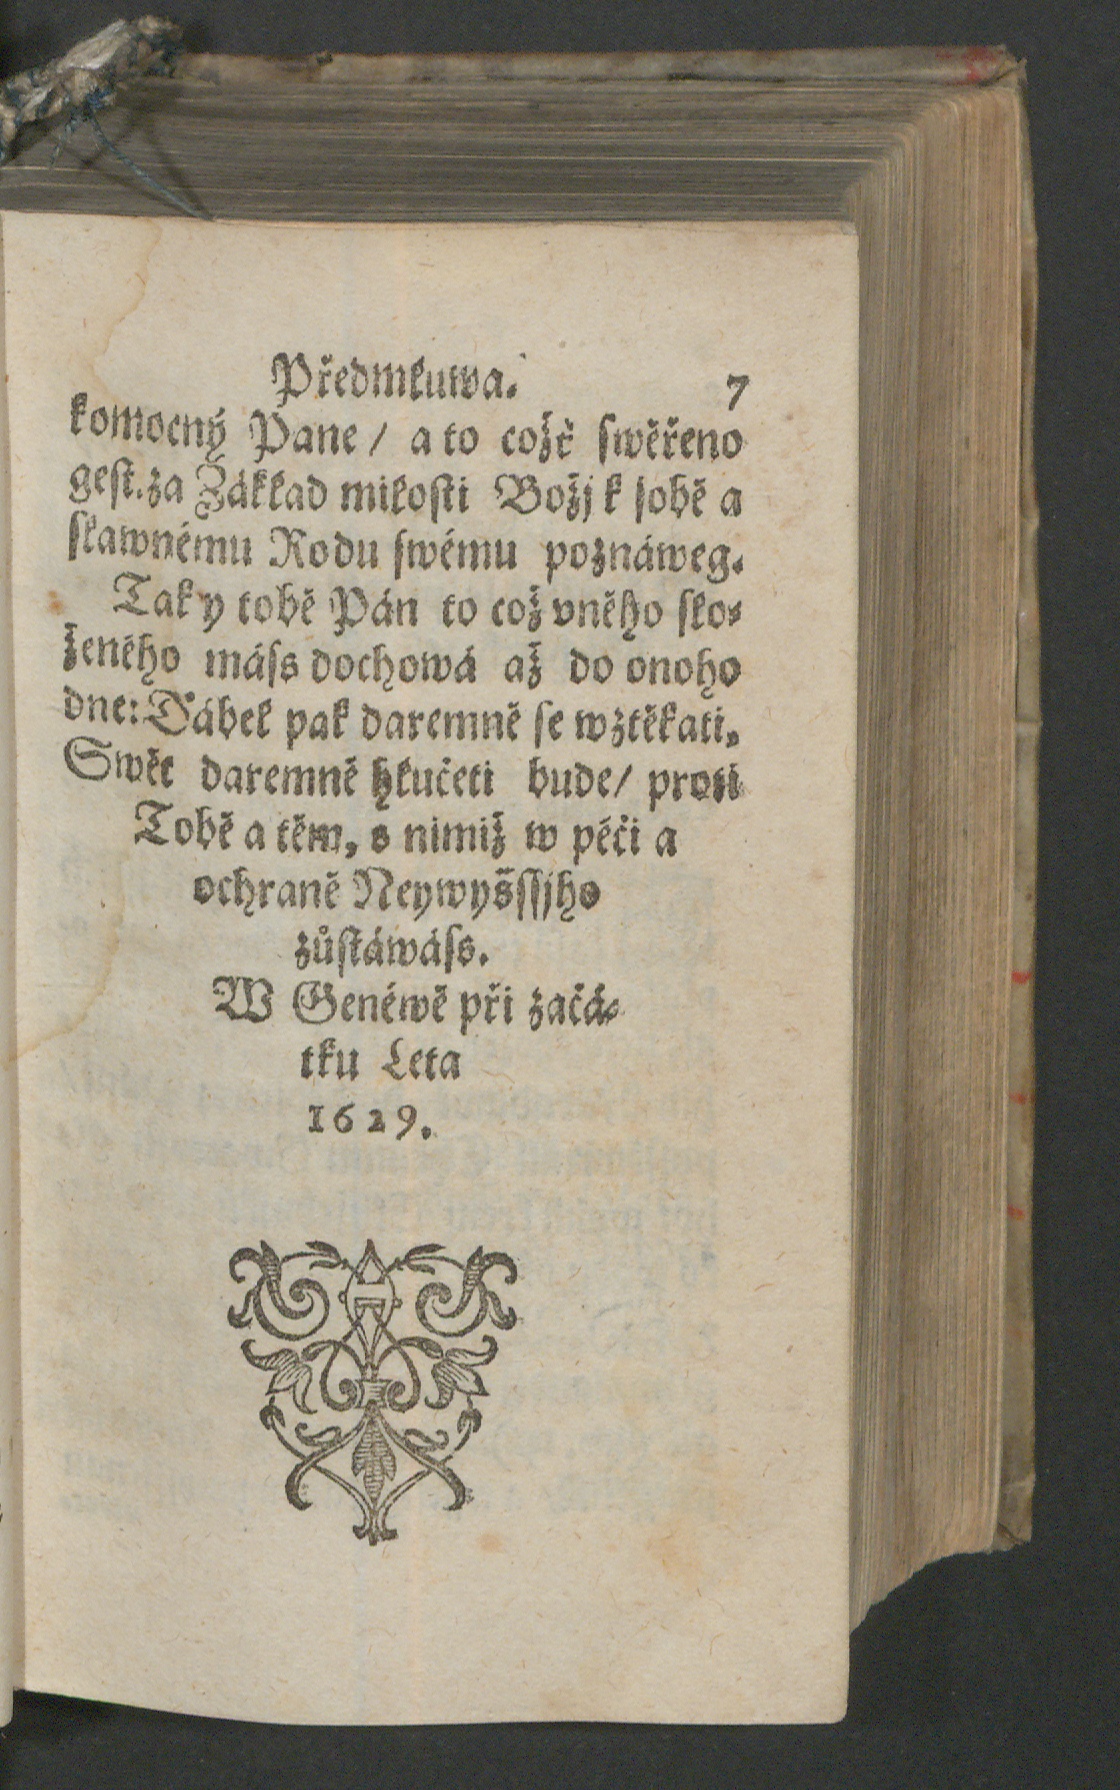 Předmłuwa. 7
komocný Pane / a to cožť swěřeno
gest. za Zákład miłosti Božj k sobě a
sławnému Rodu swému poznáweg.
Tak y tobě Pán to což vněho sło-
ženého máss dochowá až do onoho
dne: Ďábel pak daremně se wztěkati,
Swět daremně hłučeti bude / proti
Tobě a těm, s nimiž w péči a
ochraně Neywyšssjho
zůstáwáss.
W Genéwě při začá-
tku Leta
1629.